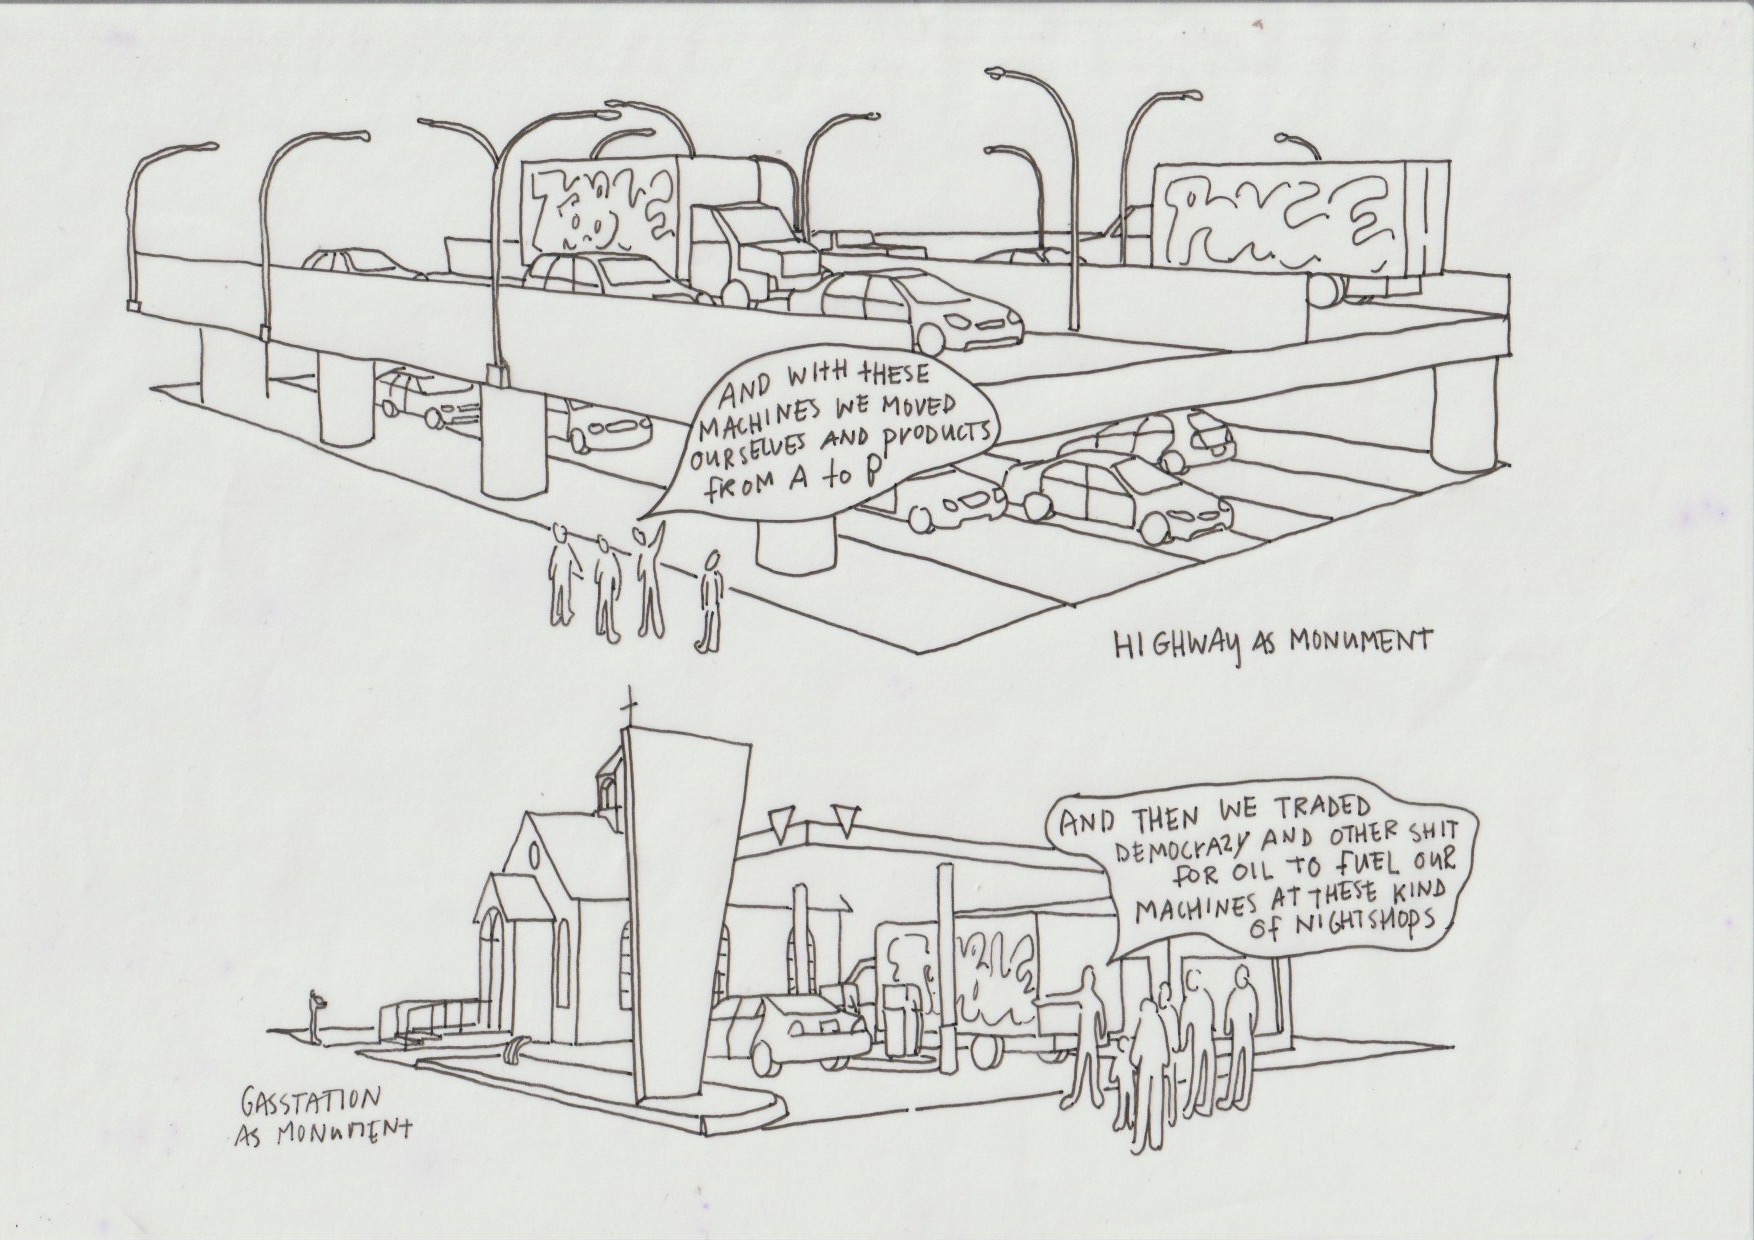 AND WITH THESE
MACHINES WE MOVED
OURSELVES AND PRODUCTS
FROM A to P
HIGHWAY AS MONUMENT
AND THEN WE TRADED
DEMOCRAZY AND OTHER SHIT
FOR OIL TO FUEL OUR
MACHINES AT THESE KIND
OF NIGHTSHOPS
GASSTATION
AS MONUMENT